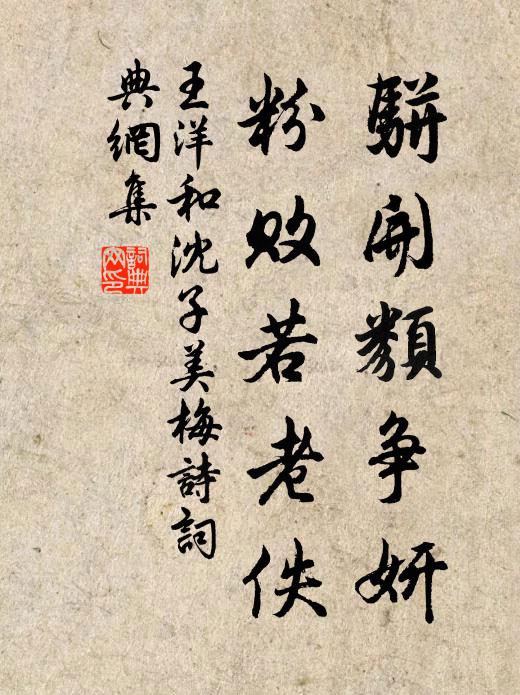 駢開類争妍
粉敗若老佚
王洋和沈子美梅詩詞
典網集
詞典
網印